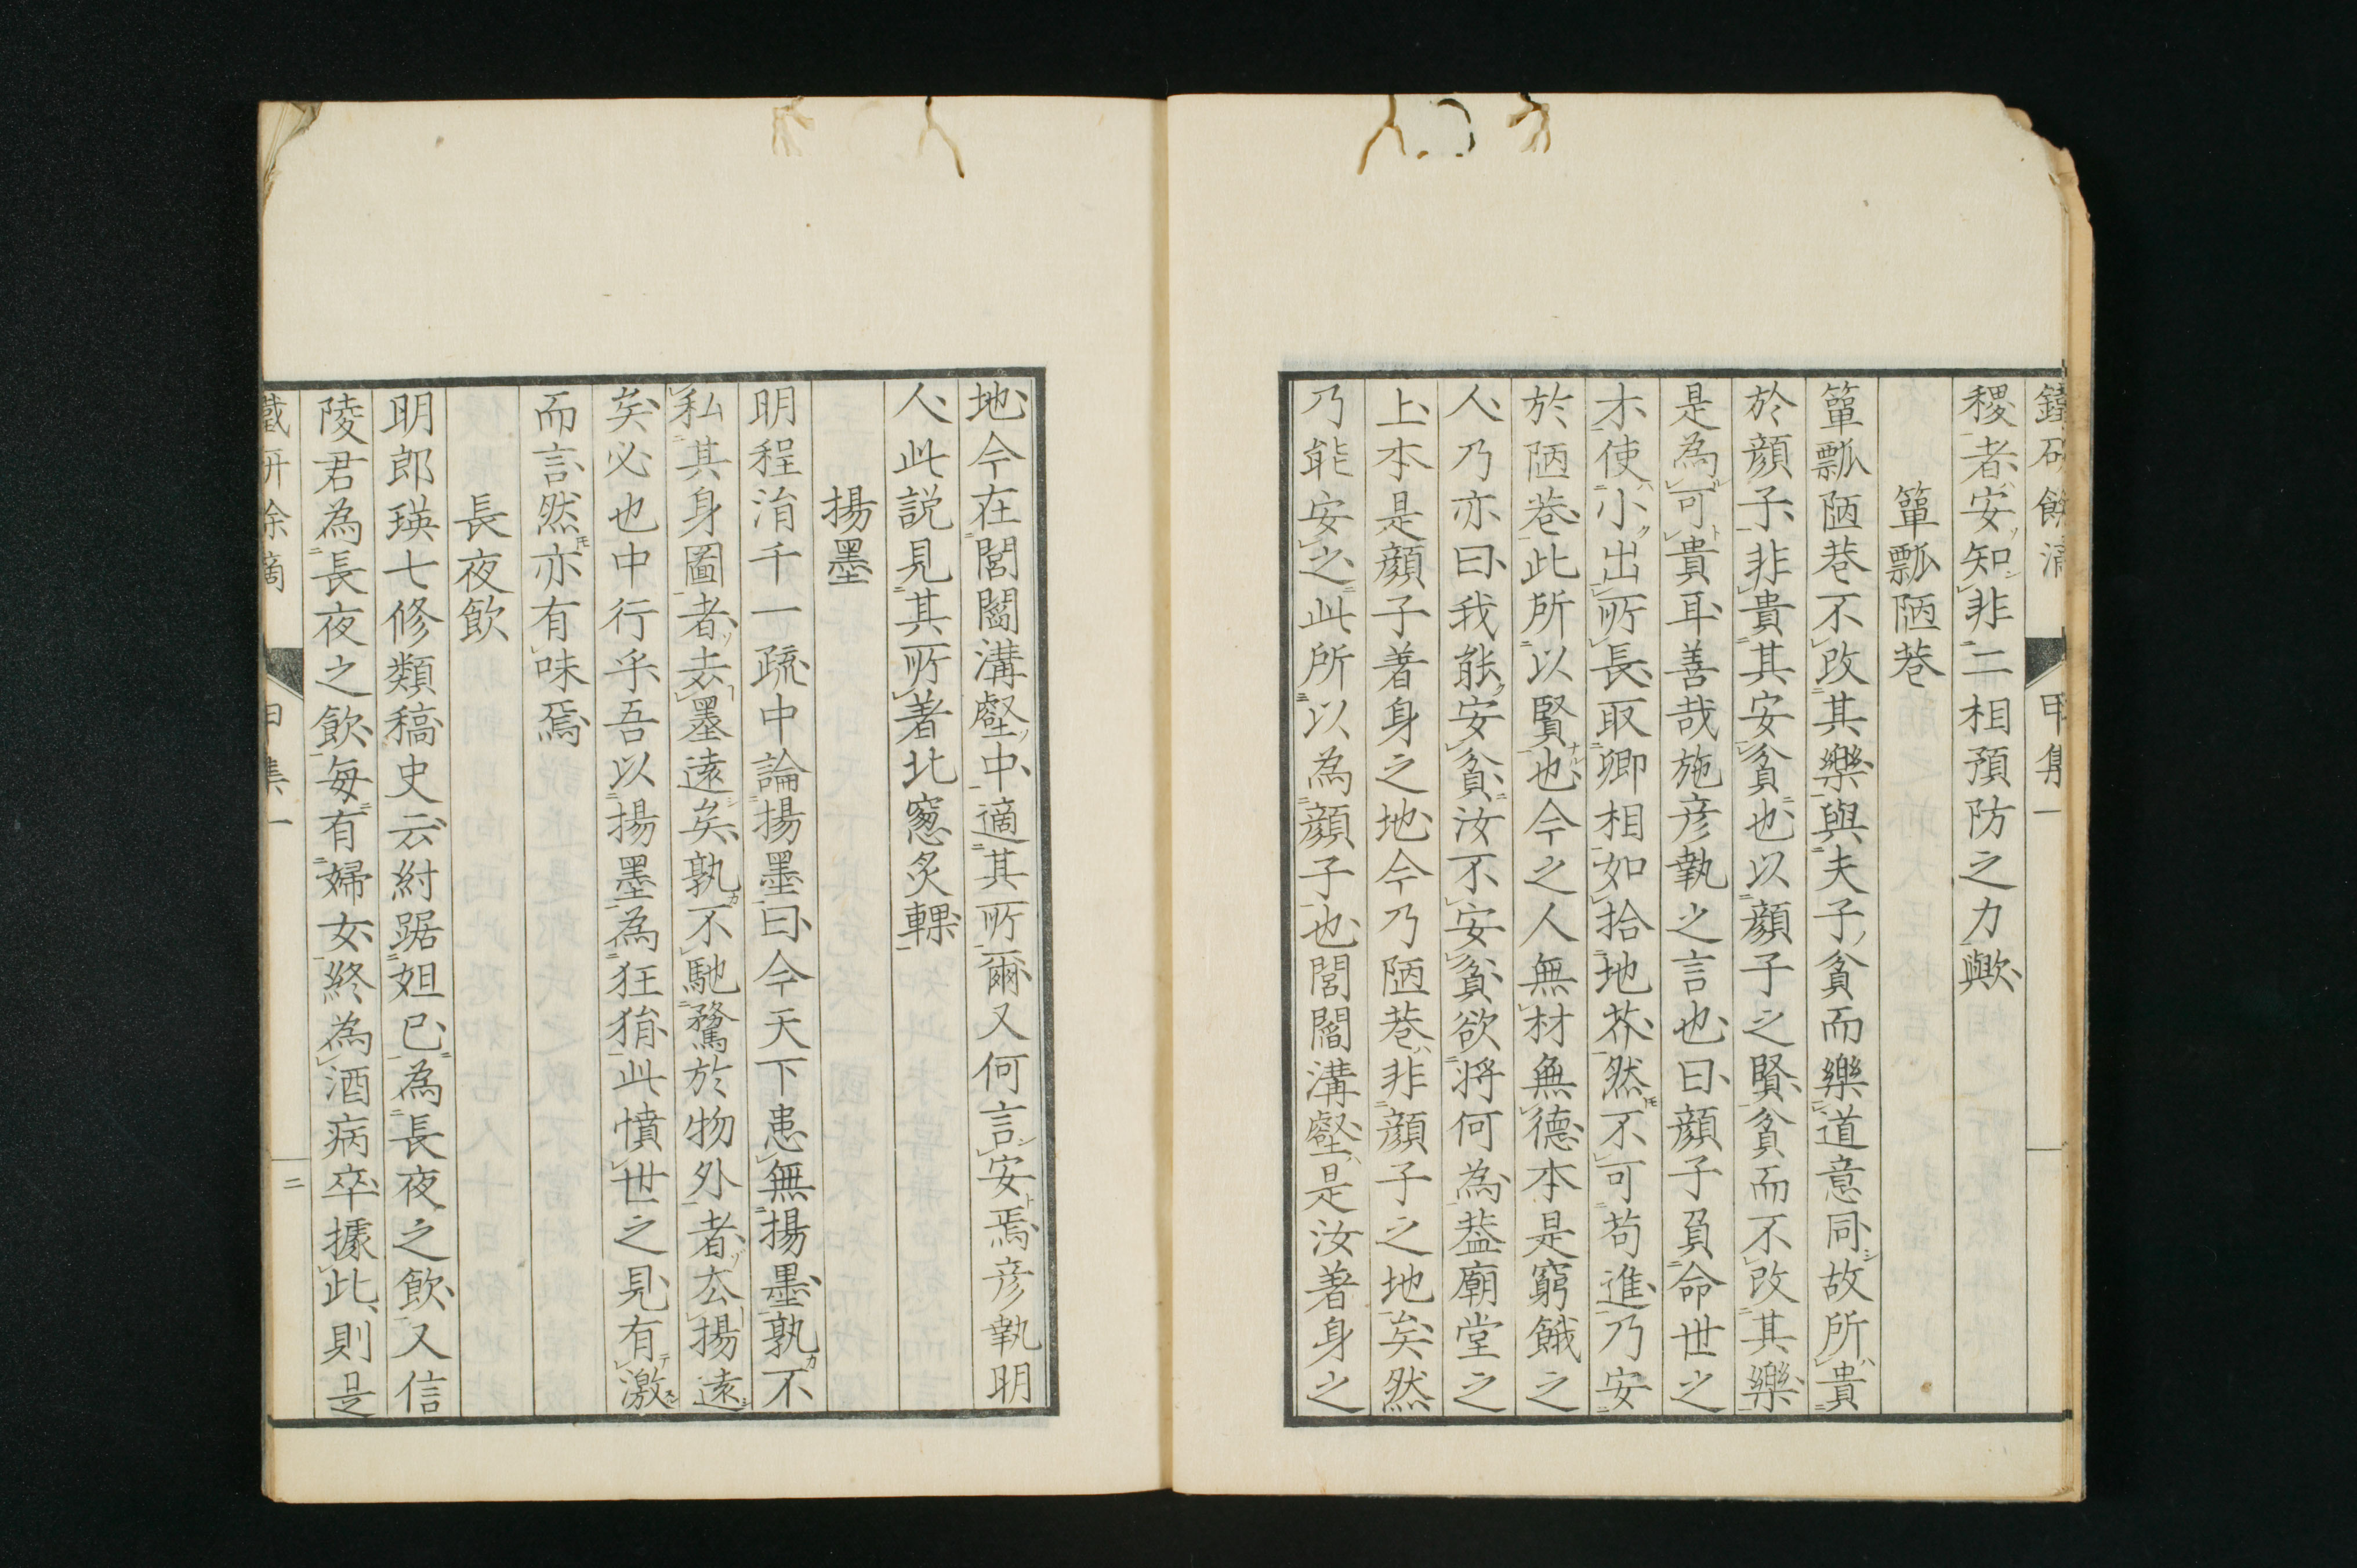 鐵研餘滴 甲集一
稷者安知非二相預防之力歟
簞瓢陋巷
簞瓢陋巷不改其樂與夫子貧而樂道意同故所貴
於顔子非貴其安貧也以顔子之賢貧而不改其樂
是為可貴耳善哉施彦執之言也曰顔子負命世之
才使小出所長取卿相如拾地芥然不可苟進乃安
於陋巷此所以賢也今之人無材無德本是窮餓之
人乃亦曰我能安貧汝不安貧欲将何為葢廟堂之
上本是顔子著身之地今乃陋巷非顔子之地矣然
乃能安之此所以為顔子也閭閻溝壑是汝著身之
地今在閭閻溝壑中適其所爾又何言安焉彦執明
人此説見其所著北窻炙輠
揚墨
明程涓千一疏中論揚墨曰今天下患無揚墨孰不
私其身圖者去墨遠矣孰不馳騖於物外者去揚遠
矣必也中行乎吾以揚墨為狂狷此憤世之見有激
而言然亦有味焉
長夜飲
明郎瑛七修類稿史云紂踞妲己為長夜之飲又信
陵君為長夜之飲每有婦女終為酒病卒據此則是
鐵研餘滴 甲集一 二